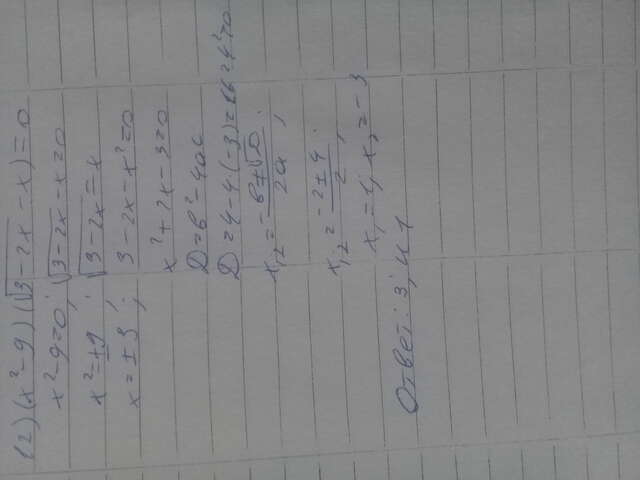 12) (x² - 9) (√3 - 2x - x) = 0
x² - 9 = 0 ; √3 - 2x - x = 0
x² = +9 ; √3 - 2x = x
x = ± 3 ; 3 - 2x - x² = 0
x² + 2x - 3 = 0
D = b² - 4ac
D = 4 - 4·(-3) = 16 = 4² > 0
x₁,₂ = -b ± √D / 2a ;
x₁,₂ = -2 ± 4 / 2 ;
x₁ = 1, x₂ = -3
Ответ: 3; и 1